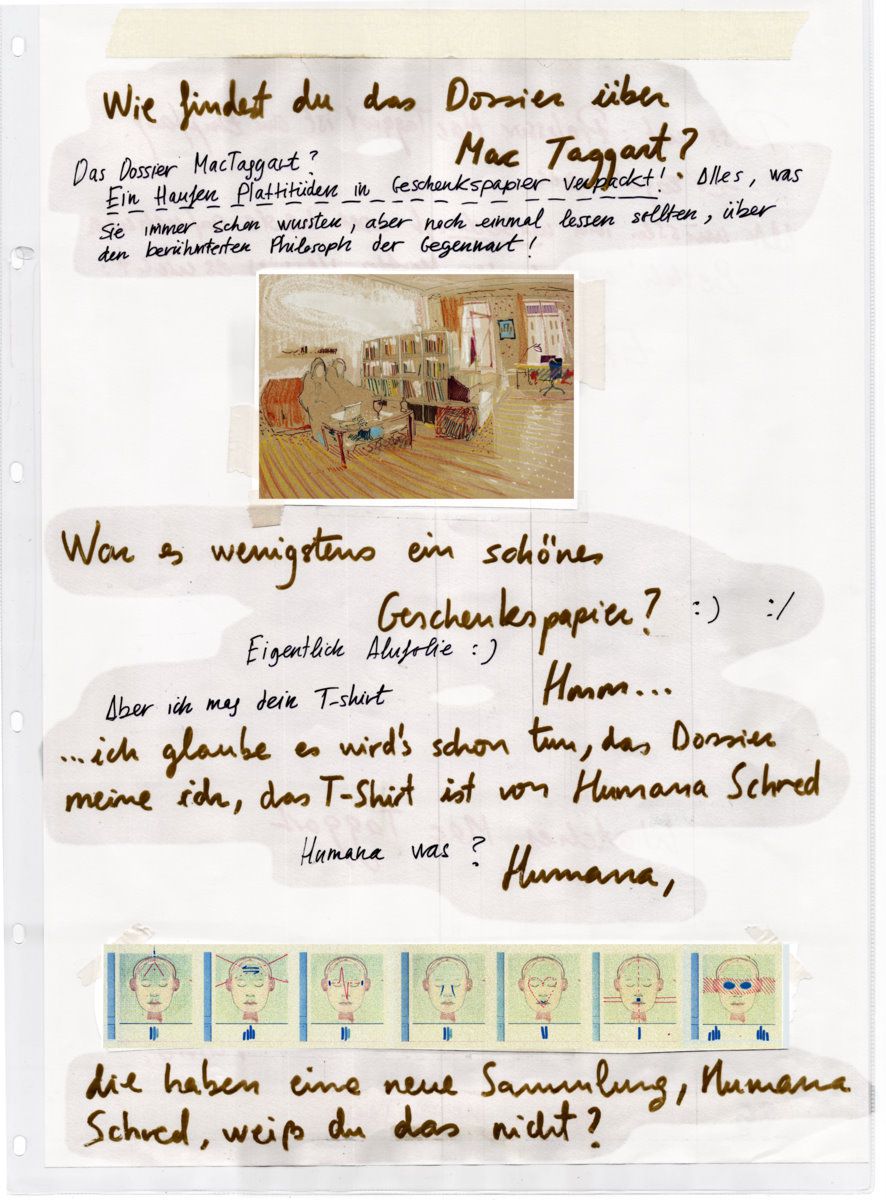 Wie findest du das Dossier über
Mac Taggart?
Das Dossier MacTaggart?
Ein Haufen Plattitüden in Geschenkspapier verpackt! Alles, was
Sie immer schon wussten, aber noch einmal lessen sollten, über
den berühmtesten Philosoph der Gegenwart!
War es wenigstens ein schönes
Geschenkspapier? :) :/
Eigentlich Alufolie :)
Hmm...
Aber ich mag dein T-shirt
...ich glaube es wird's schon tun, das Dossier
meine ich, das T-Shirt ist von Humana Schred
Humana was?
Humana,
die haben eine neue Sammlung, Humana
Schred, weißt du das nicht?